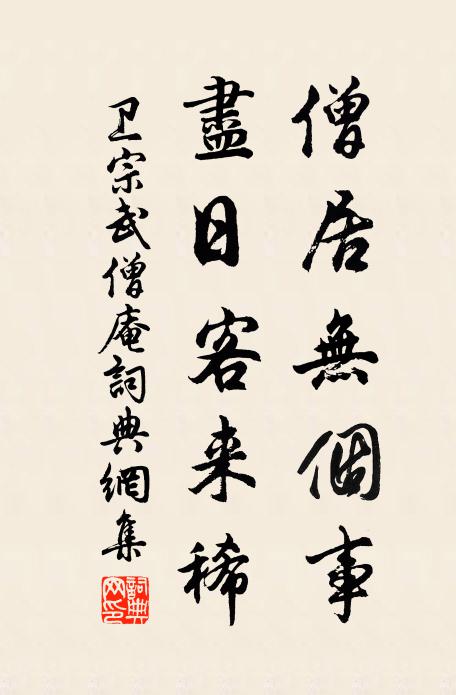 僧居無個事
盡日客来稀
卫宗武僧庵詞典網集
詞典網印